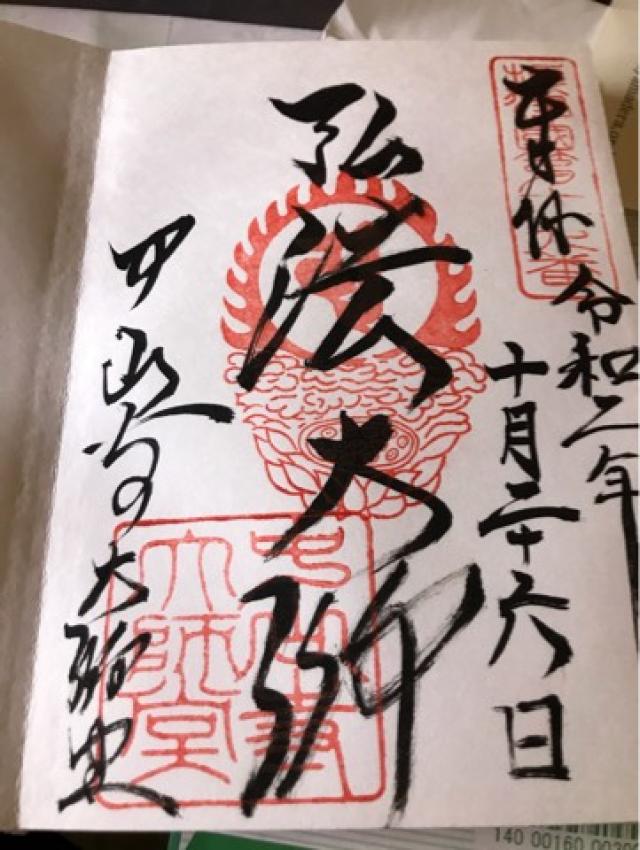 奉拝 令和二年
十月二十六日
弘法大師
中山寺大師堂
大師堂
140 00160